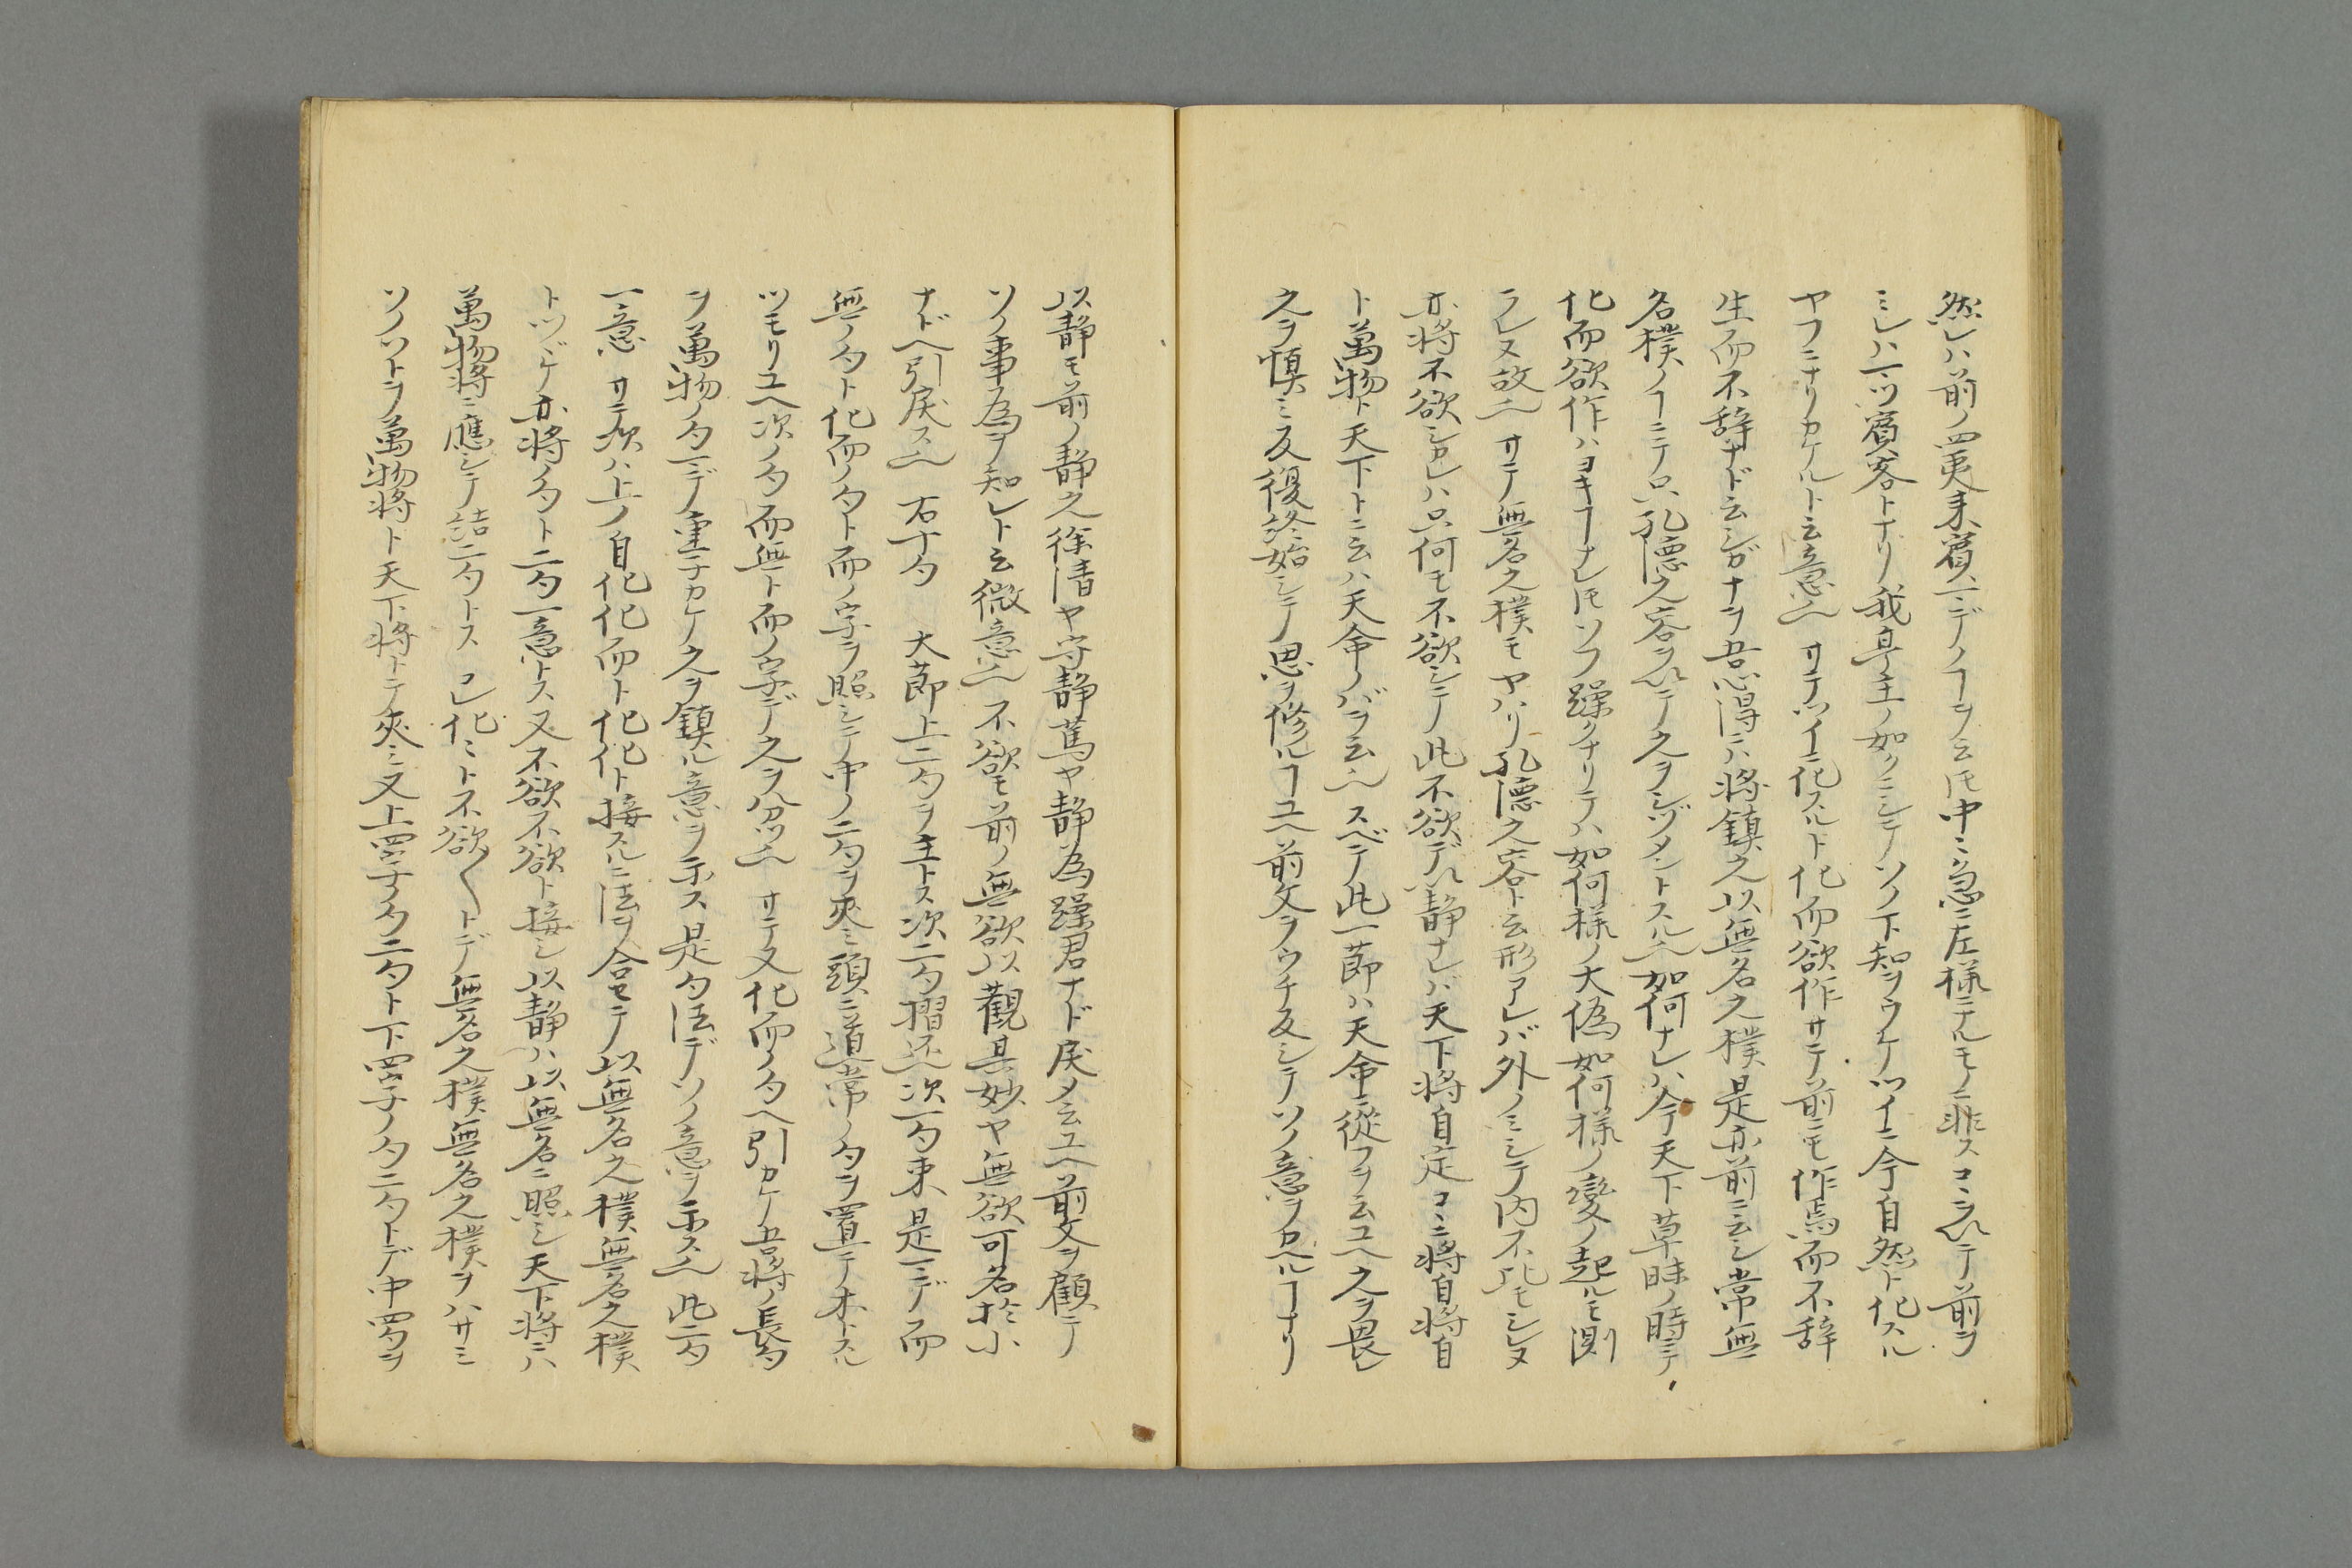 然レハ前ノ四夷来賓一デノヿヲ云ヒ中ニ急ニ左様ニナルモノニ非スコヽヲ以テ前ヲ
ミレハ一ツ賓客トナリ我亭主ノ如クニシテソノ下知ヲウケツイニ今自然ト化スル
ヤフニナリカケルト云意也 サテツイニ化スルト化而欲作サテ前ニモ作焉而不辞
生而不辞ナド云シガナヲ吾恐得ニハ将鎮之以無名之樸是亦前ニ云シ常無
名樸ノヿニテ只孔徳之容ヲ以テ之ヲシヅメントスル也如何ナレハ今天下草昧ノ時ニテ
化而欲作ハヨキヿナレ𪜈ソフ躁クナリテハ如何様ノ大偽如何様ノ變ノ起ルモ測
ラレヌ故也 サテ無名之樸モヤハリ孔徳之容ト云形アレバ外ノミシテ内不化モシレヌ
亦将不欲シカレハ只何モ不欲シテ此不欲デ以静ナレバ天下将自定コヽニ将自将自
ト萬物ト天下トニ云ハ天命ノバヲ云也スベテ此一節ハ天命ニ從フヲ云ユヘ之ヲ畏レ
之ヲ慎ミ反復終始シテ思ヲ修ルヿユヘ前文ヲウチ反シテソノ意ヲカヘルヿナリ
以静モ前ノ静之徐清ヤ守静篤ヤ静為躁君ナド戻メ云ユヘ前文ヲ顧ニテ
ソノ事為ヲ知レト云微意也 不欲モ前ノ無欲以觀其妙ヤ無欲可名於小
ナドヘ引戻ス也 右十句 大節上二句ヲ主トス次二句摺返次一句束是一デ而
無ノ句ト化而ノ句ト而ノ字ヲ照シテ中ノ二句ヲ夾ミ頭ニ道常ノ句ヲ置テ本トスル
ツモリユヘ次ノ句而無ト而ノ字デ之ヲ分ツ也 サテ又化而ノ句ヘ引カケ吾将ノ長句
ヲ萬物ノ句一デノ重ナカケ之ヲ鎮ル意ヲ示ス是句法デソノ意ヲ示ス也此二句
一意 サテ次ハ上ノ自化化而ト化化ト接スルニ法ヲ合セテ以無名之樸無名之樸
トツヾケ亦将ノ句ト二句一意トス又不欲不欲ト接シ以静ハ以無名ニ照シ天下将ニハ
萬物将ニ應シテ詰二句トス コレ化ミト不欲〱トデ無名之樸無名之樸ヲハサミ
ソノソトヲ萬物将ト天下将トテ夾ミ又上四字ノ句二句ト下四字ノ句二句トデ中四句ヲ